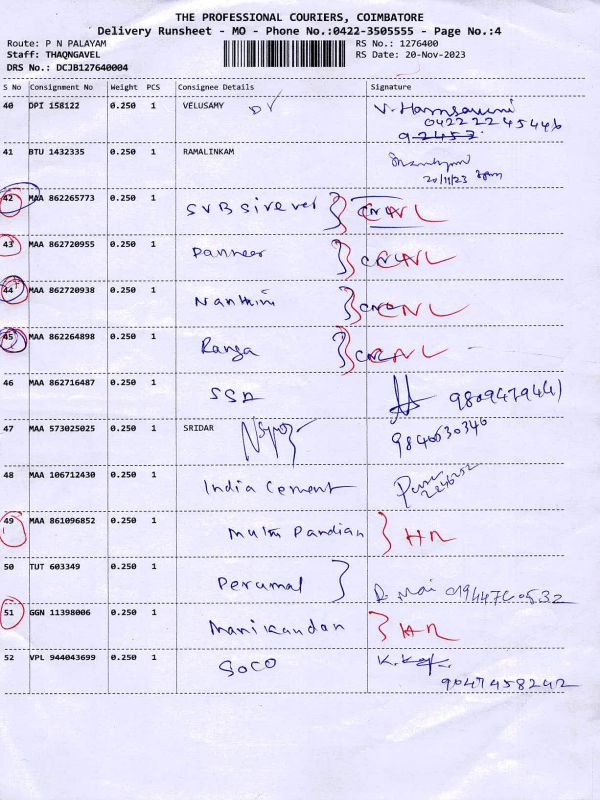 THE PROFESSIONAL COURIERS, COIMBATORE
Delivery Runsheet - MO - Phone No.:0422-3505555 - Page No.:4
Route: P N PALAYAM RS No.: 1276400
Staff: THAQNGAVEL RS Date: 20-Nov-2023
DRS No.: DCJB127640004
S No Consignment No Weight PCS Consignee Details Signature
40 DPI 158122 0.250 1 VELUSAMY
04222245446
41 BTU 1432335 0.250 1 RAMALINKAM
20/11/23
42 MAA 862265773 0.250 1 CNL
43 MAA 862720955 0.250 1 Panneer CNL
44 MAA 862720938 0.250 1 Nanthini CNL
45 MAA 862264898 0.250 1 Ranga CNL
46 MAA 862716487 0.250 1
47 MAA 573025025 0.250 1 SRIDAR 9840630346
48 MAA 106712430 0.250 1 India Cement
49 MAA 861096852 0.250 1 Muthu Pandian
50 TUT 603349 0.250 1 Perumal
51 GGN 11398006 0.250 1 Manikandan
52 VPL 944043699 0.250 1 SOCO
9047458242